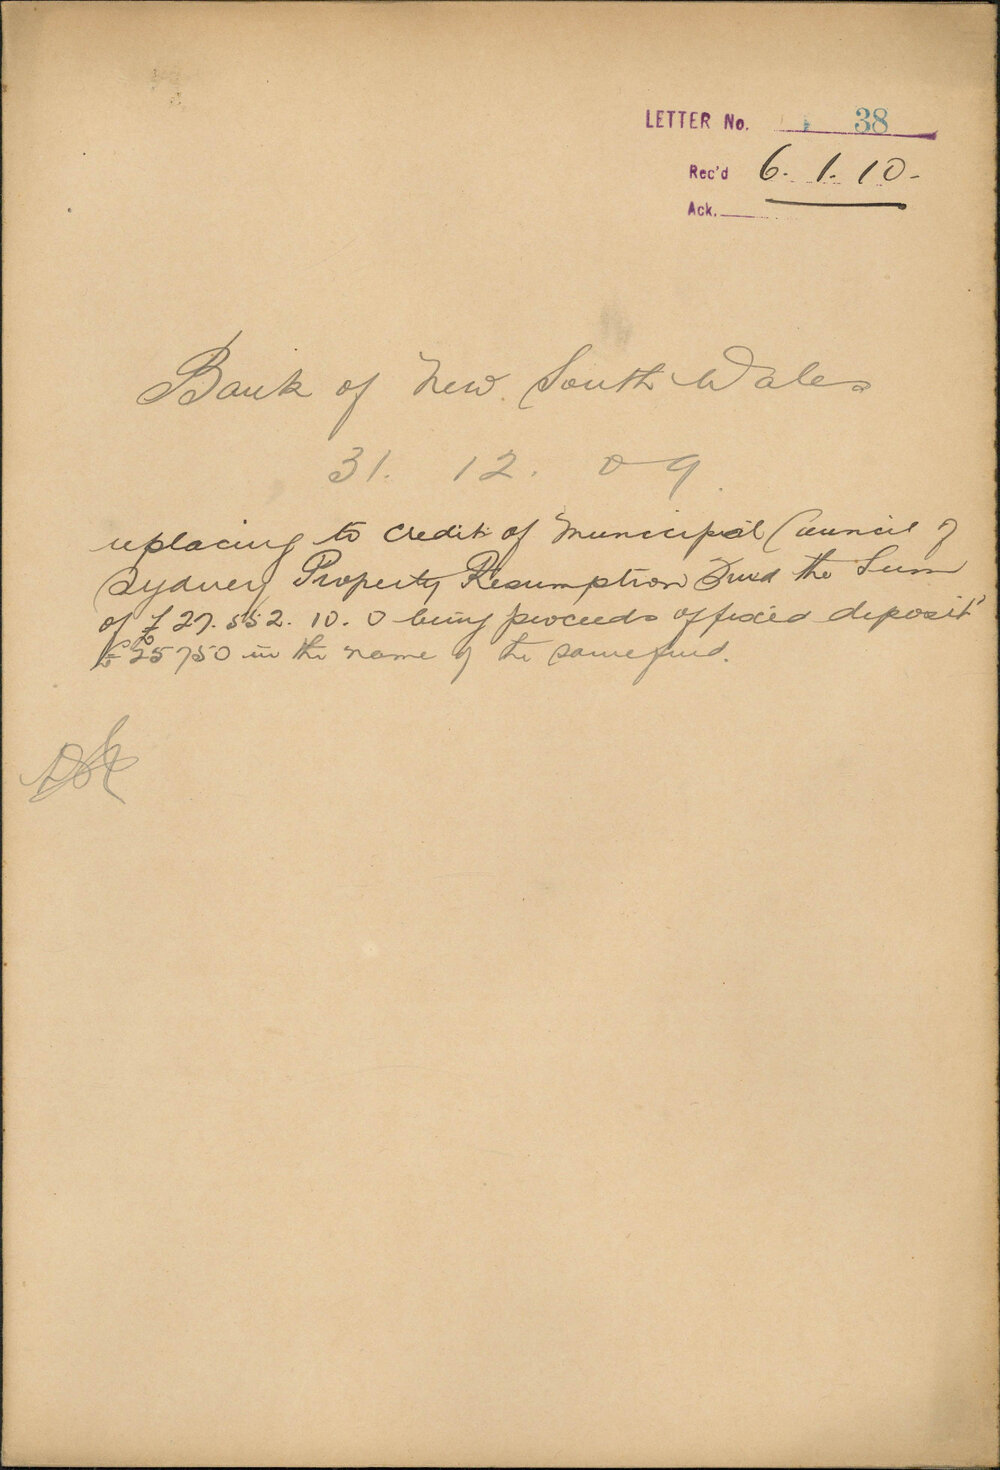 LETTER No. 38
Rec'd 6. 1. 10.
Ack.
Bank of New South Wales
31. 12. 09.
replacing to credit of Municipal Council of
Sydney Property Resumption Fund the Sum
of £27.552.10.0 being proceeds of fixed deposit
£25750 in the name of the same fund.